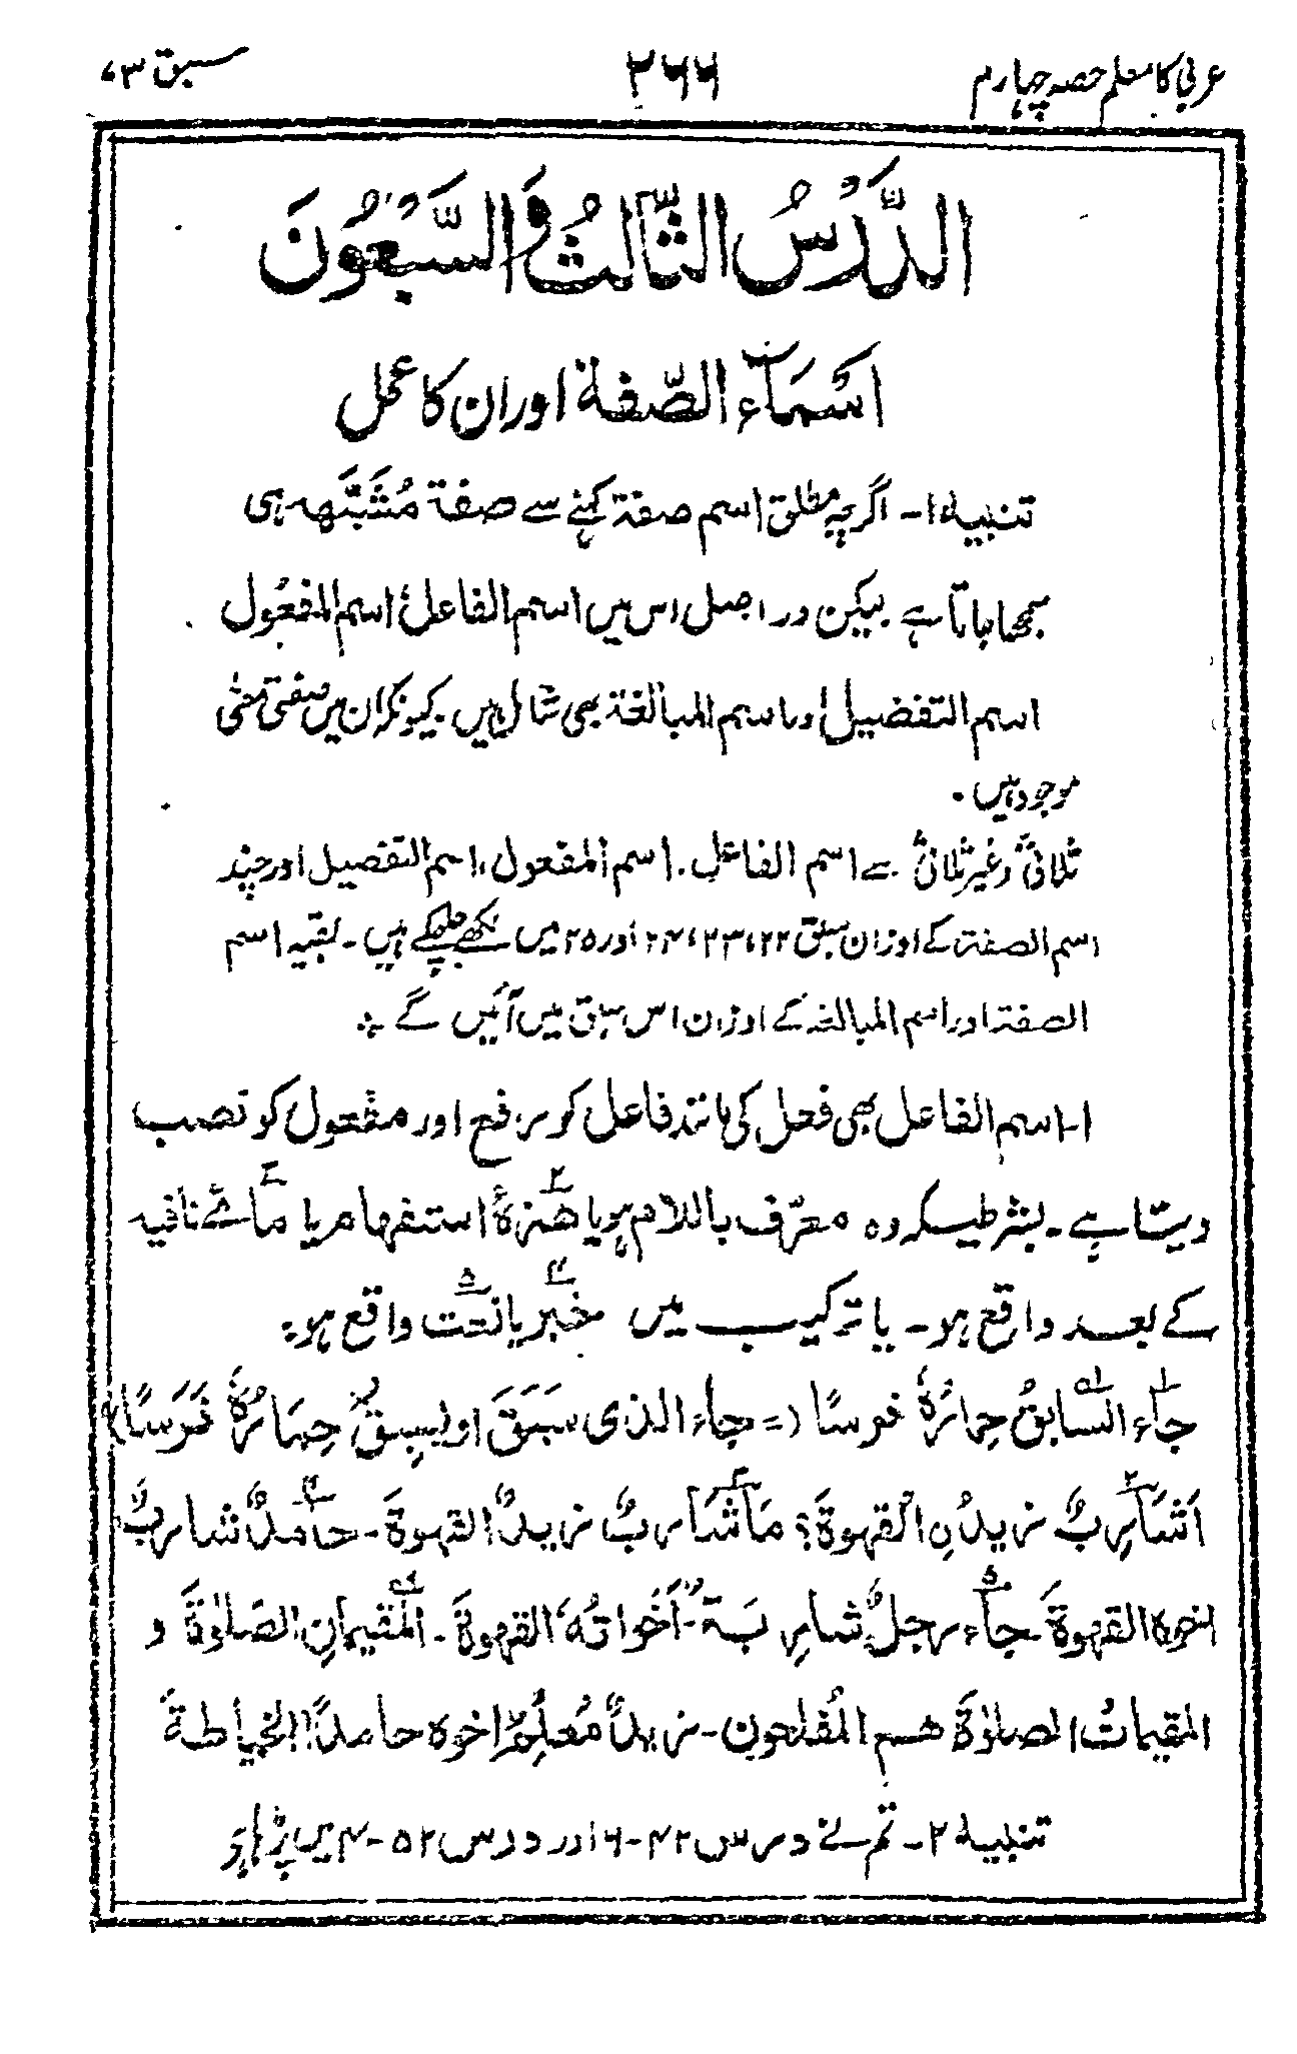 عربی کا معلم حصہ چہارم
۲۶۶
سبق ۷۳
الدَّرْسُ الثَّالِثُ وَالسَّبْعُوْنَ
اَسْمَآء الصّفة اور ان کا عمل
تنبیہ ۱۔ اگرچہ مطلق اسم صفۃ کہنے سے صفۃ مُشَبَّهه ہی
سمجھا جاتا ہے لیکن در اصل اس میں اسم الفاعل، اسم المفعُول
اسم التفضیل اور اسم المبالغة بھی شامل ہیں۔ کیونکہ ان میں صفتی معنٰی
موجود ہیں۔
ثلاثی و غیر ثلاثی سے اسم الفاعل، اسم المفعول، اسم التفضیل اور چند
اسم الصفۃ کے اوزان سبق ۲۲، ۲۳، ۲۴ اور ۲۵ میں لکھے جا چکے ہیں۔ بقیہ اسم
الصفۃ اور اسم المبالغہ کے اوزان اس سبق میں آئیں گے ؞
۱۔ اسم الفاعل بھی فعل کی مانند فاعل کو رفع اور مفعول کو نصب
دیتا ہے۔ بشرطیکہ وہ معرّف باللام ہو یا ھمزۂ استفهام یا مائے نافیہ
کے بعد واقع ہو۔ یا ترکیب میں خبر یا نعت واقع ہو:
جاء السّابقُ حِمارُہٗ فرسًا (= جاء الذی سَبَقَ او یسبِقُ حِمَارُہٗ فَرَسًا)
اَشَارِبٌ زیدُنِ الْقهوةَ؟ مَا شَارِبٌ زیدٌ القهوةَ۔ حامدٌ شاربٌ
اخوہ القهوةَ۔ جاء رجلٌ شارِبَةٌ اَخَواتُهٗ القهوةَ۔ اَلْمُقیمانِ الصَّلٰوةَ و
المقیماتُ الصلوٰةَ هم المُفلحون۔ زیدٌ مُعلِّمٌ اخوہ حامدًا الخیاطةَ
تنبیہ ۲۔ تم نے درس ۴۲-۶ اور درس ۵۲-۴ میں پڑھا ہو